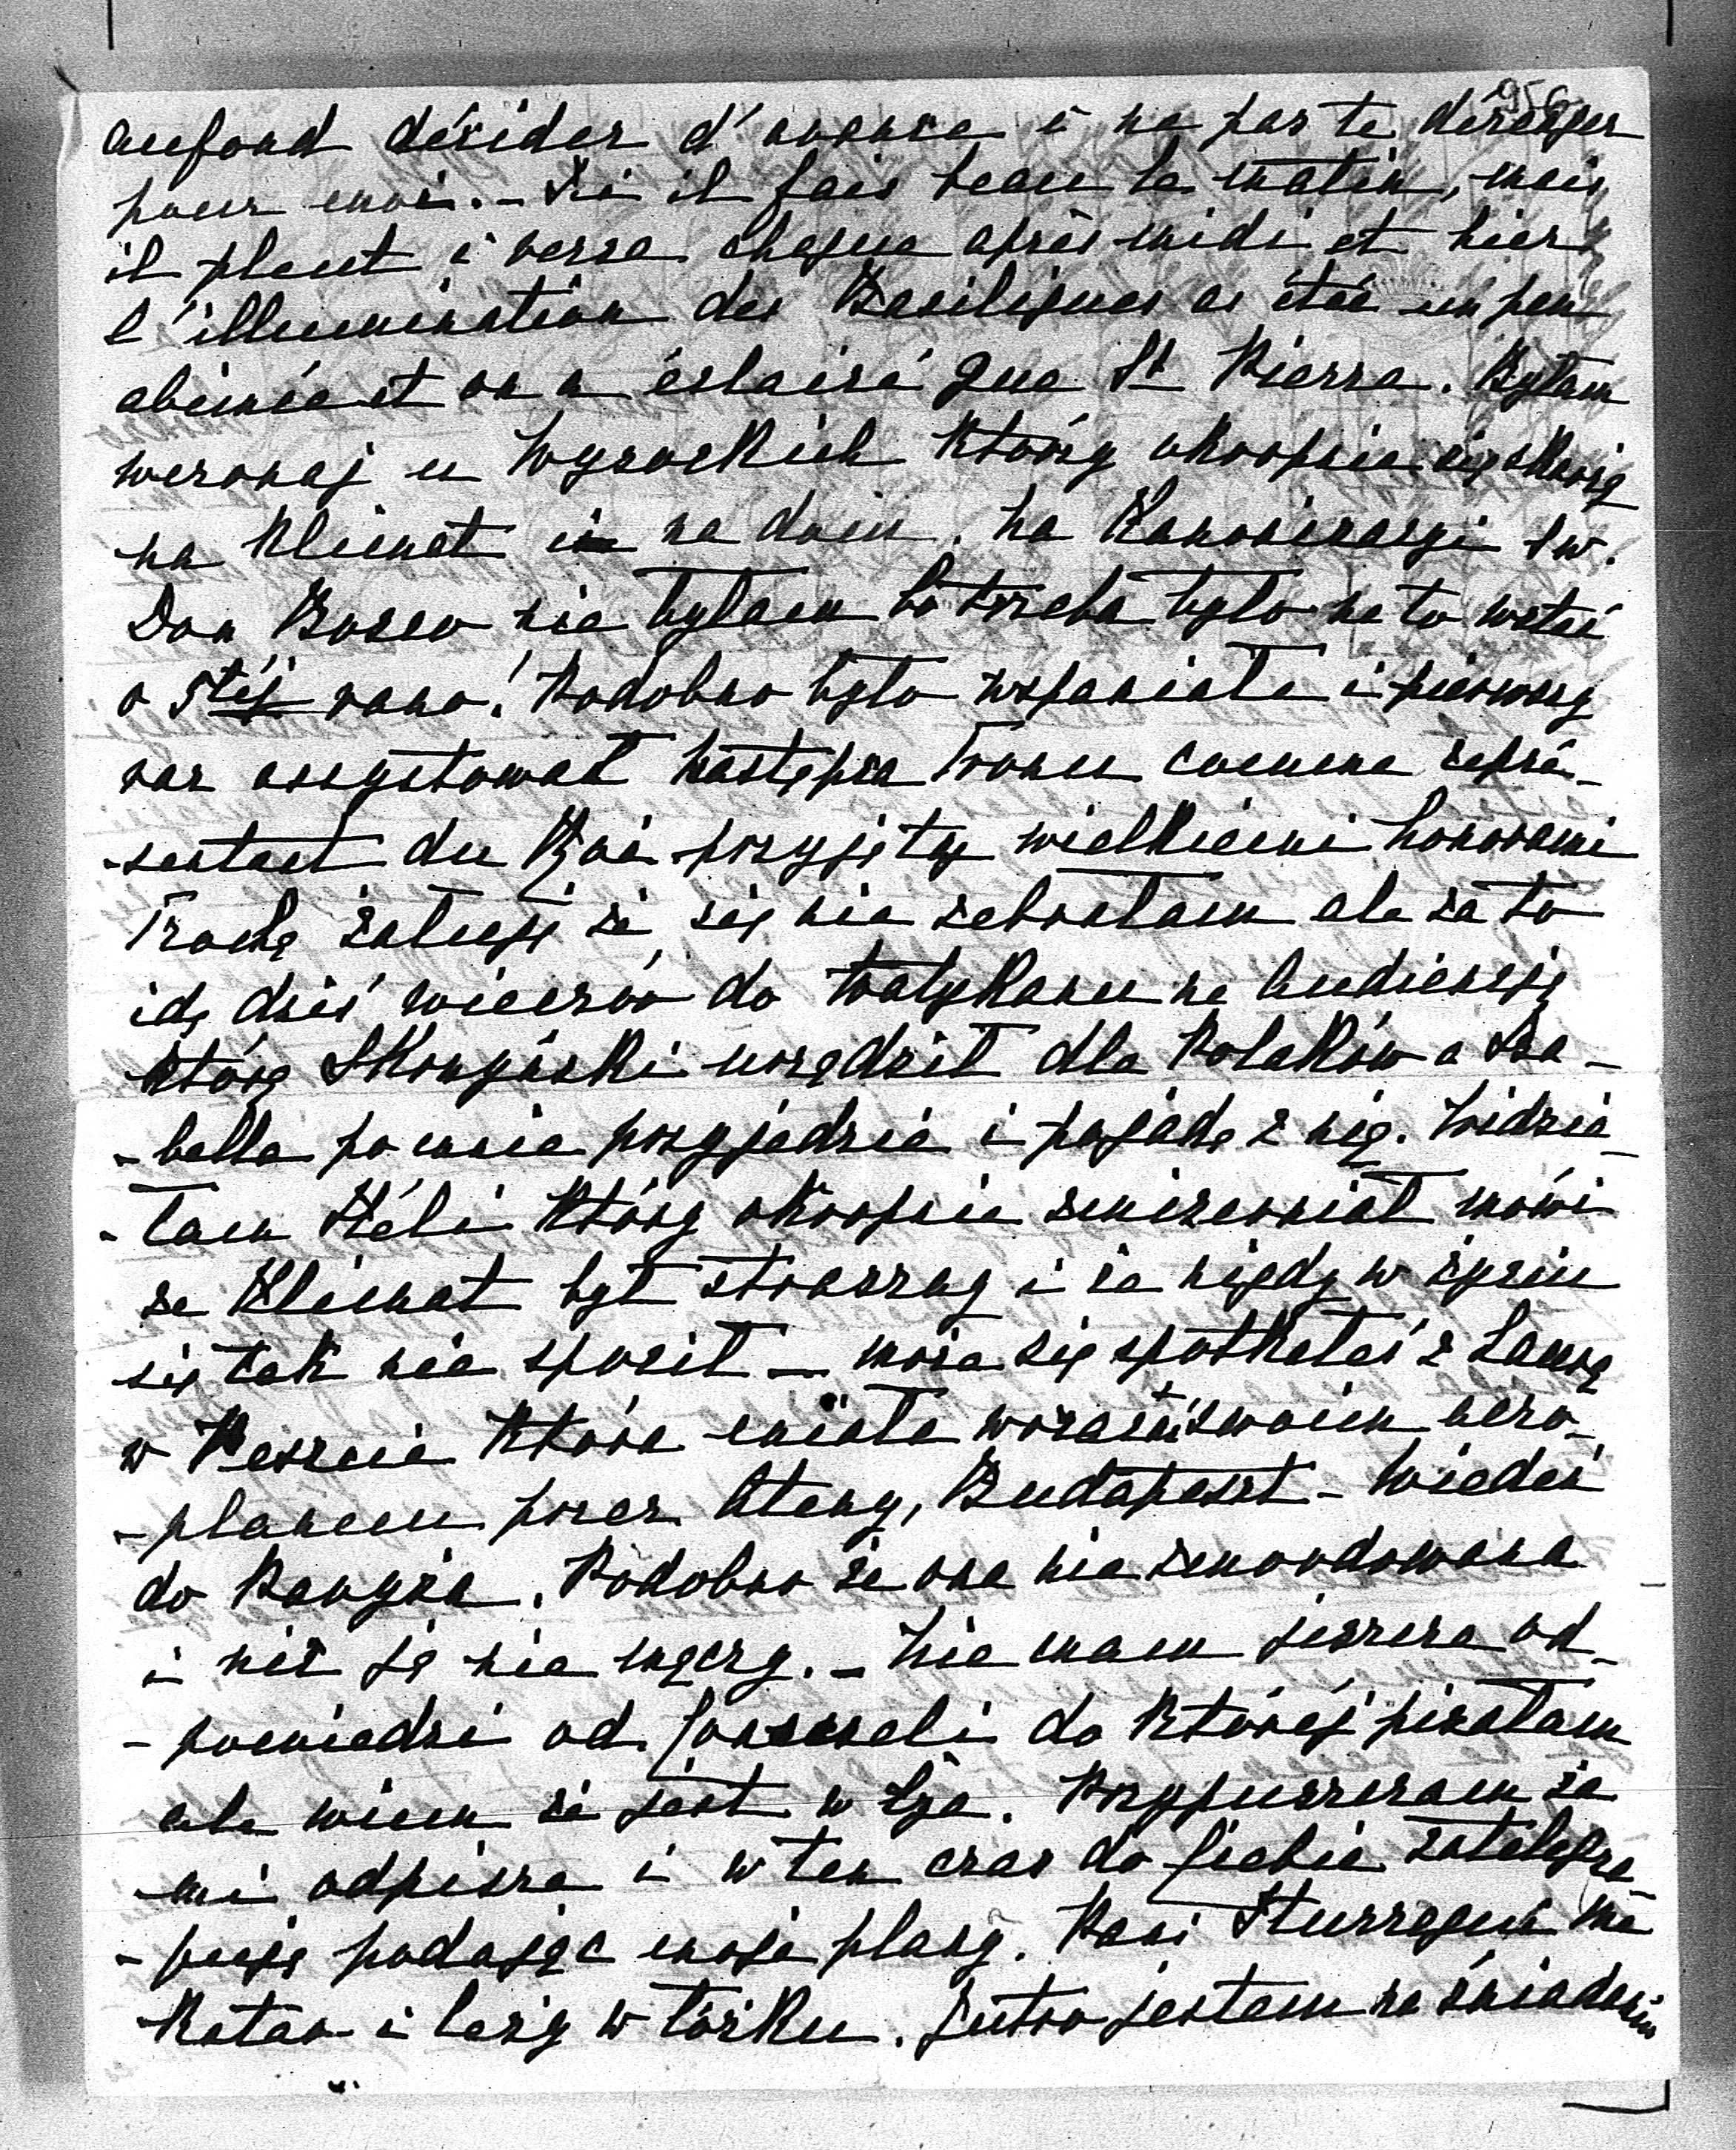 956
au fond décider d'avance i ne pas te déranger
pour moi. - Ici il fais beau le matin, mais
il pleut à verse chaque après midi et hier
l'illumination des Basiliques as étée un peu
abimée et on a éclairé que St Pierre. Byłam
wczoraj u Wysockich którzy okropnie się skarżą
na klimat i na dom. Na Kanonizacyi św.
Don Bosco nie byłam bo trzeba było na to wstać
o 5téj rano! Podobno było wspaniałe i pierwszy
raz assystował następca Tronu comme repré-
-sentant du Roi przyjęty wielkiemi honorami
Trochę żałuję że się nie zebrałam ale za to
idę dziś wieczór do Watykanu na Audiencyę
którą Skrzyński urządził dla Polaków a Isa-
-bella po mnie przyjedzie i pojadę z nią. Widzia-
-łam Héli który okropnie zmizerniał mówi
że Klimat był straszny i że nigdy w życiu
się tak nie spocił - może się spotkałaś z Laurą
w Peszcie która miała wracać swoim aero-
-planem przez Ateny, Budapeszt - Wiedeń
do Paryża. Podobno że ona nie zmordowana
i nic ją nie męczy. - Nie mam jeszcze od-
-powiedzi od do któréj pisałam
ale wiem że jest w Łże. Przypuszczam że
mi odpisze i w ten czas do Ciebie zatelegra-
-fuję podając moje plany. Pani ma
Katar i leży w łóżku. Jutro jestem na śniadaniu